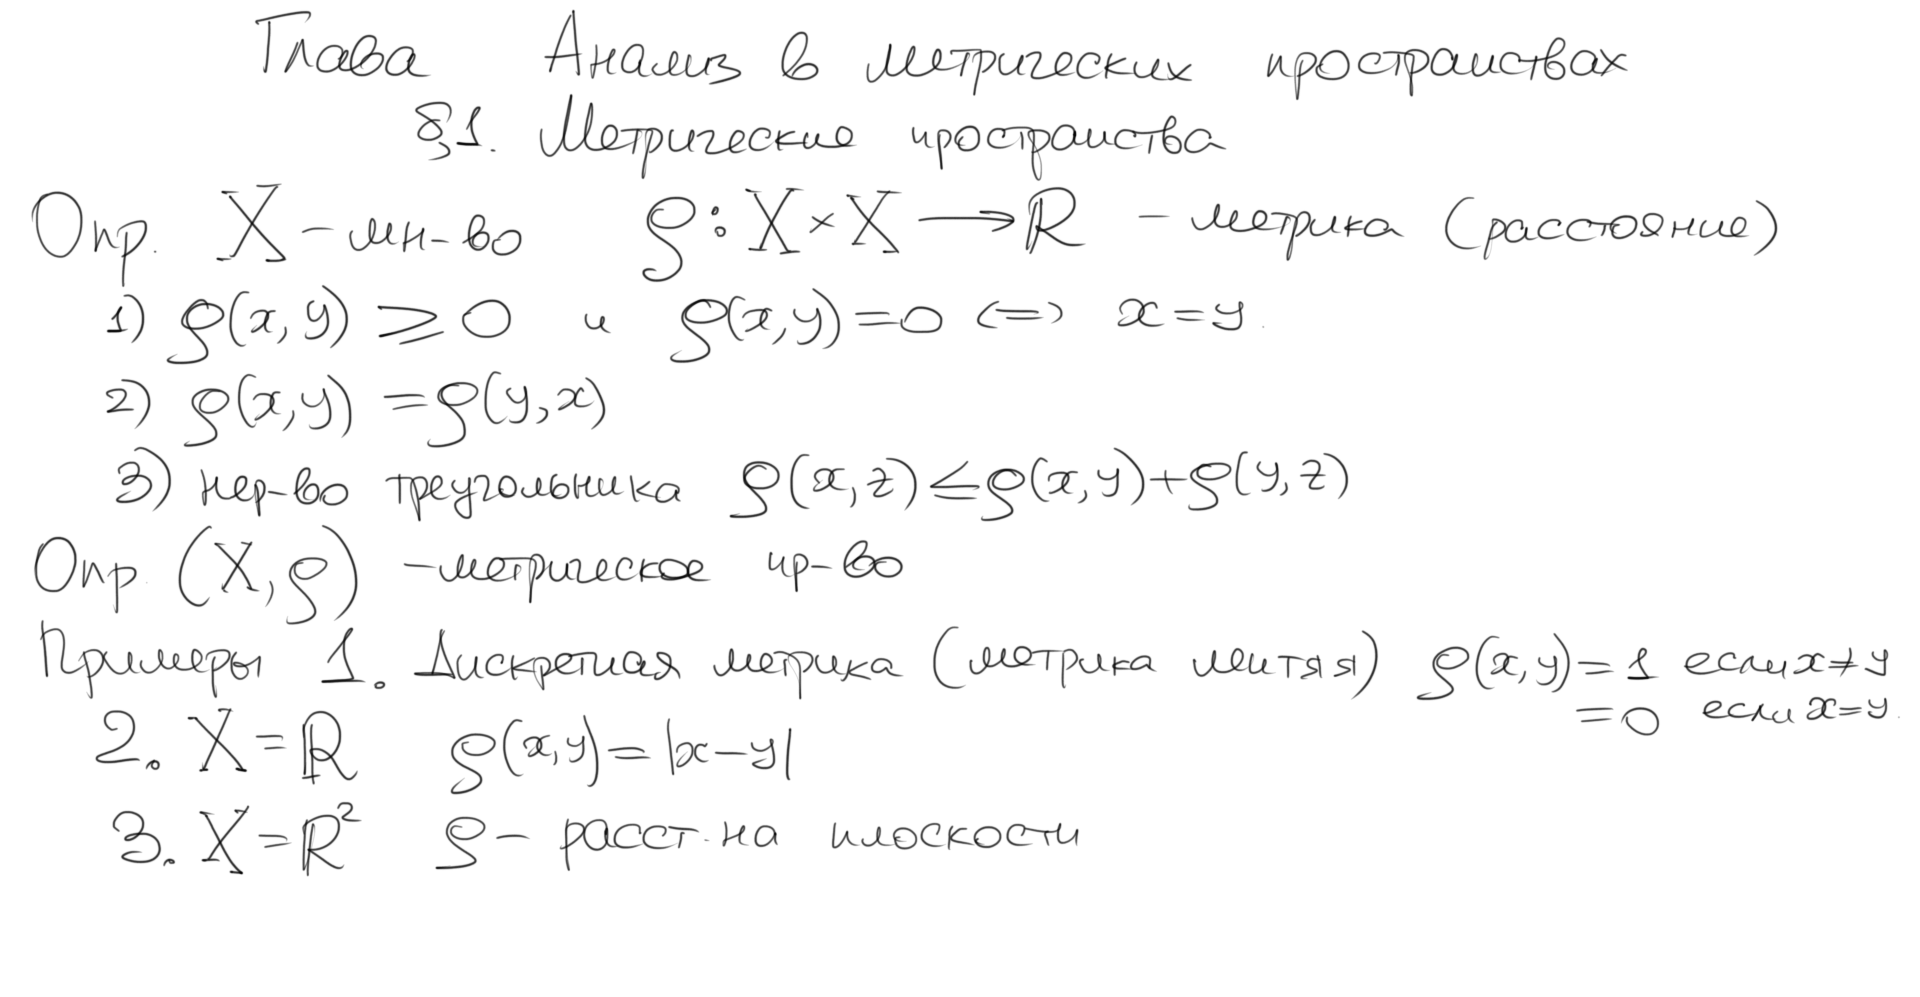 Глава Анализ в метрических пространствах
§1. Метрические пространства
Опр. X – мн-во ρ: X × X ⟶ ℝ – метрика (расстояние)
1) ρ(x, y) ⩾ 0 и ρ(x, y) = 0 <=> x = y.
2) ρ(x, y) = ρ(y, x)
3) нер-во треугольника ρ(x, z) ≤ ρ(x, y) + ρ(y, z)
Опр. (X, ρ) – метрическое пр-во
Примеры 1. Дискретная метрика (метрика лентяя) ρ(x, y) = 1 если x ≠ y
= 0 если x = y.
2. X = ℝ ρ(x, y) = |x – y|
3. X = ℝ² ρ – расст. на плоскости